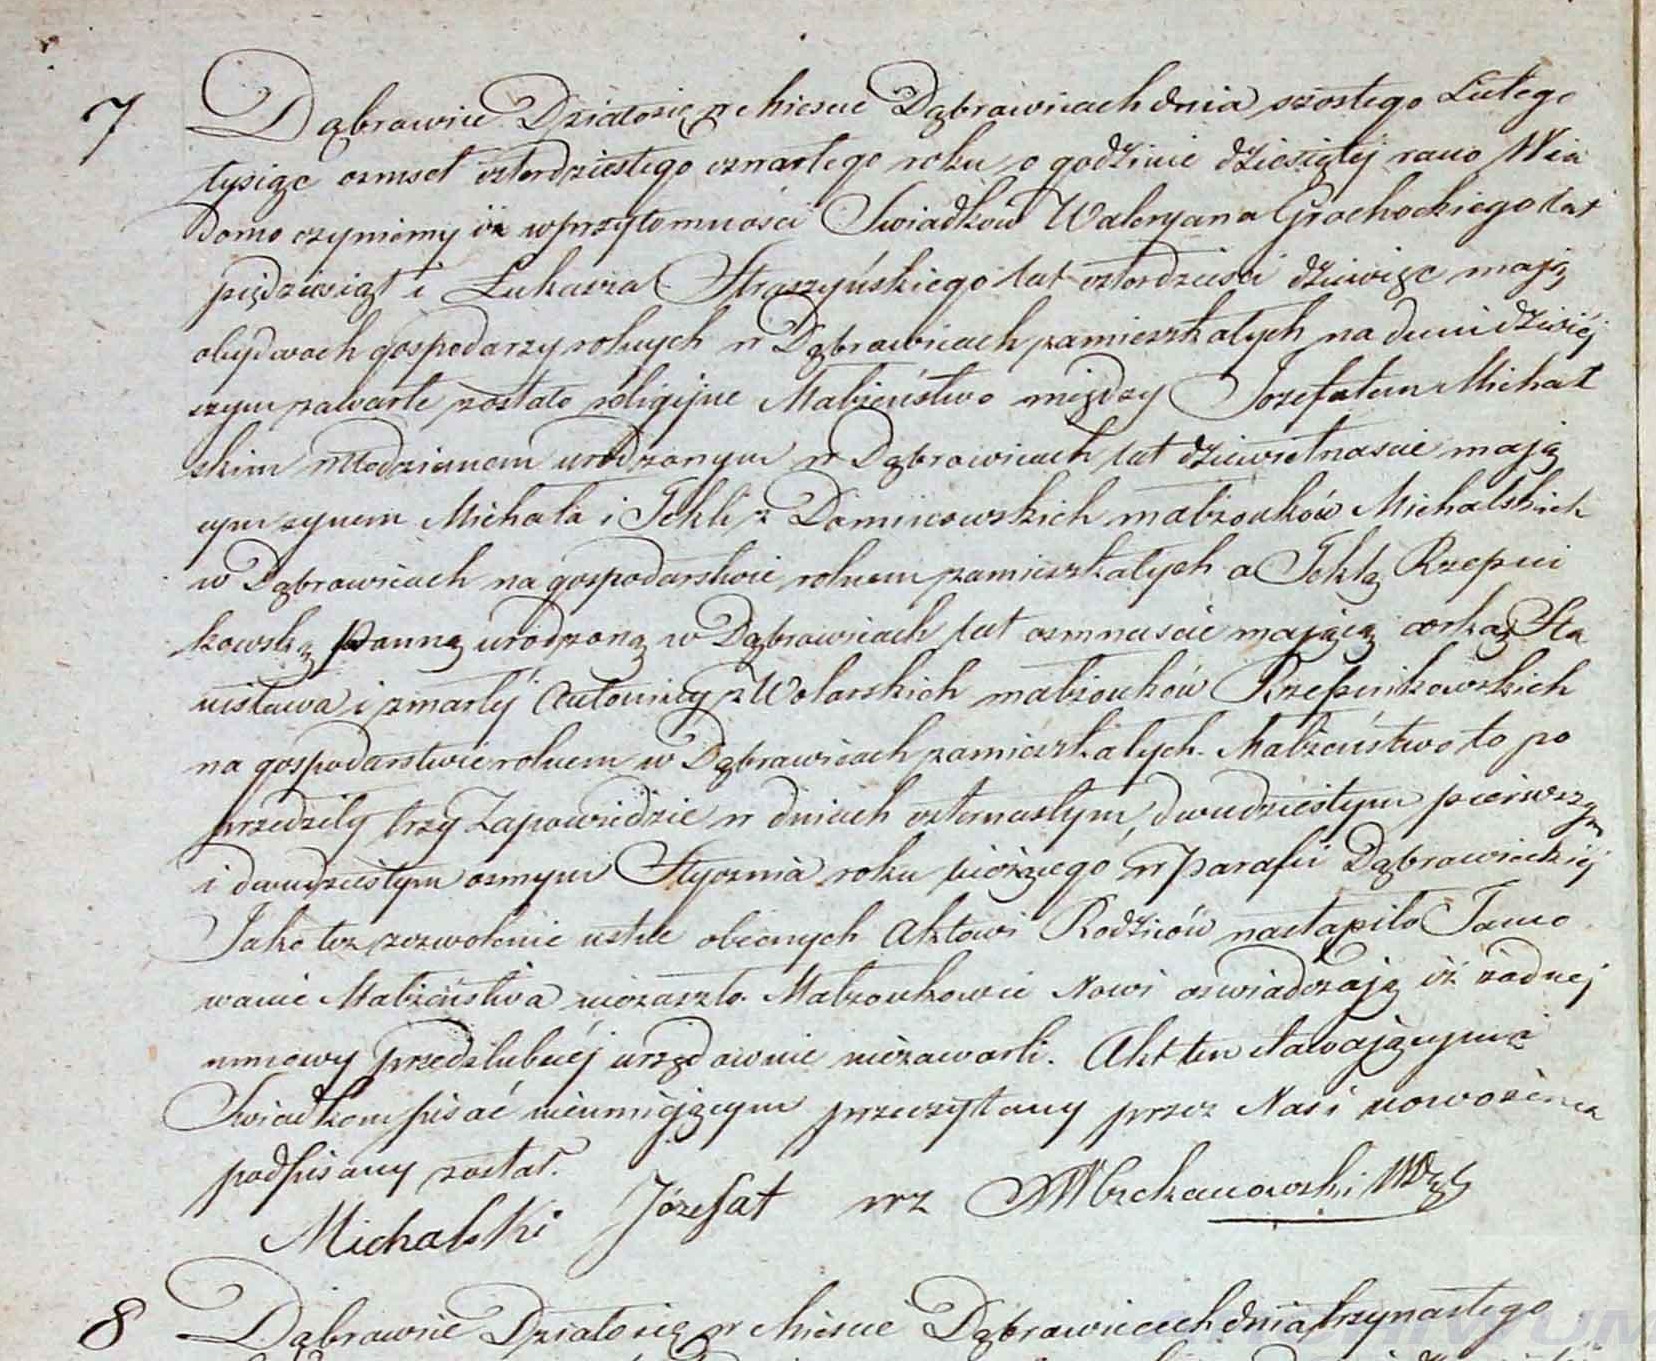 7 Dąbrowice Działosię w Miescie Dąbrowicach dnia szostego Lutego
tysiąc osmset czterdziestego czwartego roku o godzinie dziesiątej rano Wia
domo czyniemy iż wprzytomności Swiadków Waleryana Grochockiego lat
pięдziesiąt i Łukasza Straszyńskiego lat czterdzieści dziewięc mają
obydwoch gospodarzy rolnych w Dąbrowicach zamieszkałych na dniu dzisiéj
szym zawarte zostało religijne Małżeństwo między Jozefatem Michal
skim Młodzianem urodzonym w Dąbrowicach lat dziewietnascie mają
cym synem Michała i Tekli z małżonków Michalskich
w Dąbrowicach na gospodarstwie rolnem zamieszkałych a Teklą Rzepni
kowską Panną urodzoną w Dąbrowicach lat osmnascie mającą corką Sta
nisława i zmarłéj Antoniny z Wolarskich małżonków Rzepnikowskich
na gospodarstwie rolnem w Dąbrowicach zamieszkałych. Małżeństwo to po
przedziły trzy Zapowiedzie w dniach czternastym, dwudziestym pierwszym
i dwudziestym osmym Stycznia roku bieżącego w Parafii Dąbrowickiéj
Jako też zezwolenie ustne obecnych Aktowi Rodziców nastąpiło Tamo
wanie Małżeństwa niezaszło. Małżonkowie Nowi oswiadczają iż żadnej
umowy przedslubnéj urzędownie niezawarli. Akt ten stawającym i
Swiadkom pisać nieumiejącym przeczytany przez Nas i nowożeńca
podpisany został.
Michalski Józefat
8 Dąbrowice Działosię w Miescie Dąbrowicach dnia trzynastego